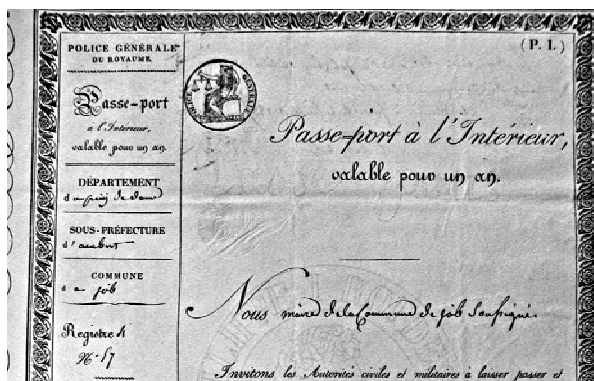 POLICE GÉNÉRALE
DU ROYAUME.
Passe-port
à l'Intérieur,
valable pour un an.
DÉPARTEMENT
du puy de dome
SOUS-PRÉFECTURE
d'ambert
COMMUNE
de job
Registre
N.° 57
(P. I.)
POLICE GÉNÉRALE
Passe-port à l'Intérieur,
valable pour un an.
Nous maire de la Commune de job Soussigné
Invitons les Autorités civiles et militaires à laisser passer et